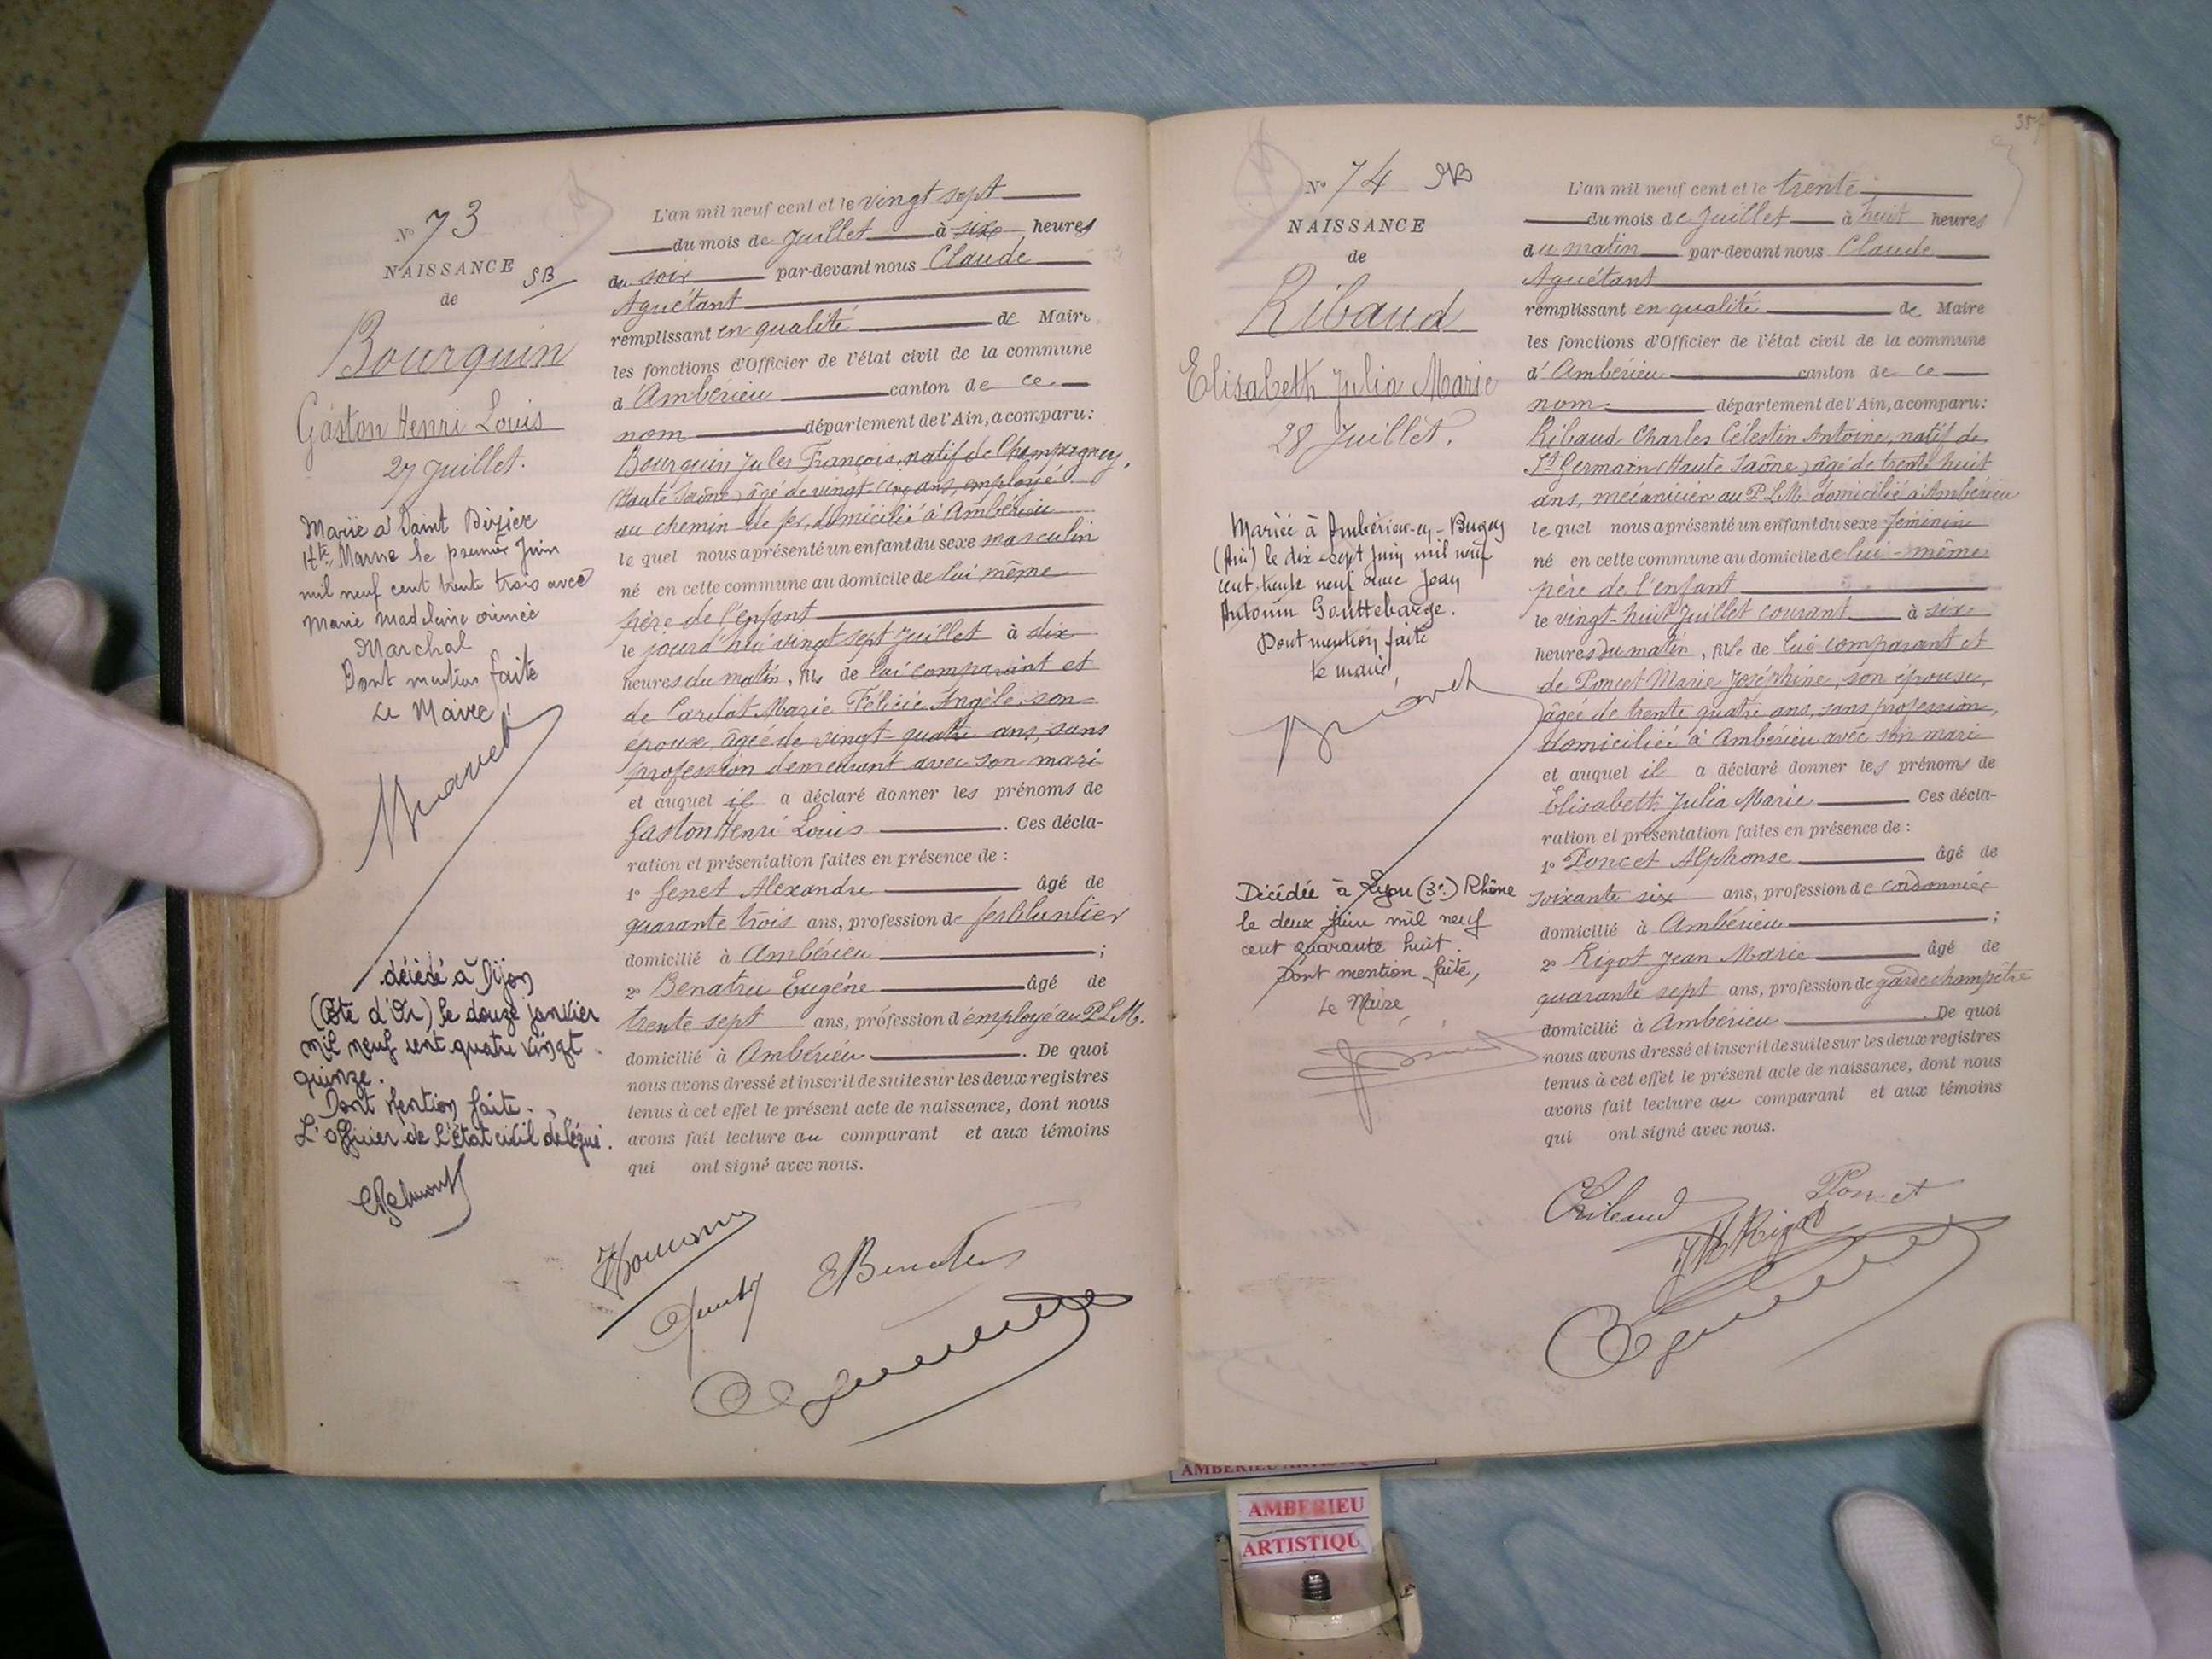 N° 73
NAISSANCE
SB
de
Bourquin
Gaston Henri Louis
27 Juillet.
Marié à Saint Dizier
Hte Marne le premier Juin
mil neuf cent trente trois avec
Marie Madeleine Aimée
Marchal
Dont mention faite
Le Maire,
décédé à Dijon
(Côte d'Or) le douze janvier
mil neuf cent quatre vingt
quinze.
Dont Mention faite.
L'officier de l'état civil délégué.
L'an mil neuf cent et le vingt sept
du mois de Juillet à six heures
du soir par-devant nous Claude
Aguétant
remplissant en qualité de Maire
les fonctions d'Officier de l'état civil de la commune
d'Ambérieu canton de ce
nom département de l'Ain, a comparu :
Bourquin Jules François, natif de Champagney,
(Haute Saône) âgé de vingt-cinq ans, employé
au chemin de fer, domicilié à Ambérieu
le quel nous a présenté un enfant du sexe masculin
né en cette commune au domicile de lui même
père de l'enfant
le jourd'hui vingt sept Juillet à dix
heures du matin, fils de lui comparant et
de Cardot Marie Félicie Angèle son
épouse, âgée de vingt-quatre ans, sans
profession demeurant avec son mari
et auquel il a déclaré donner les prénoms de
Gaston Henri Louis . Ces décla-
ration et présentation faites en présence de :
1° Genet Alexandre âgé de
quarante trois ans, profession de ferblantier
domicilié à Ambérieu ;
2° Benatru Eugène âgé de
trente sept ans, profession d'employé au P.L.M.
domicilié à Ambérieu . De quoi
nous avons dressé et inscrit de suite sur les deux registres
tenus à cet effet le présent acte de naissance, dont nous
avons fait lecture au comparant et aux témoins
qui ont signé avec nous.
EBenatru
N° 74
NAISSANCE
de
Ribaud
Elisabeth Julia Marie
28 Juillet.
Mariée à Ambérieu-en-Bugey
(Ain) le dix sept Juin mil neuf
cent trente neuf avec Jean
Antonin Gouttebarge.
Dont mention faite
Le maire,
Décédée à Lyon (3e) Rhône
le deux juin mil neuf
cent quarante huit.
Dont mention faite,
Le Maire,
L'an mil neuf cent et le trente
du mois de Juillet à huit heures
du matin par-devant nous Claude
Aguétant
remplissant en qualité de Maire
les fonctions d'Officier de l'état civil de la commune
d'Ambérieu canton de ce
nom département de l'Ain, a comparu :
Ribaud Charles Célestin Antoine, natif de
St Germain (Haute Saône) âgé de trente huit
ans, mécanicien au P.L.M. domicilié à Ambérieu
le quel nous a présenté un enfant du sexe féminin
né en cette commune au domicile de lui-même
père de l'enfant
le vingt-huit Juillet courant à six
heures du matin, fille de lui comparant et
de Poncet Marie Joséphine, son épouse,
âgée de trente quatre ans, sans profession,
domiciliée à Ambérieu avec son mari
et auquel il a déclaré donner les prénoms de
Elisabeth Julia Marie Ces décla-
ration et présentation faites en présence de :
1° Poncet Alphonse âgé de
soixante six ans, profession de cordonnier
domicilié à Ambérieu ;
2° Rigot Jean Marie âgé de
quarante sept ans, profession de garde champêtre
domicilié à Ambérieu . De quoi
nous avons dressé et inscrit de suite sur les deux registres
tenus à cet effet le présent acte de naissance, dont nous
avons fait lecture au comparant et aux témoins
qui ont signé avec nous.
CRibaud
Poncet
JM Rigot
AMBERIEU
ARTISTIQU